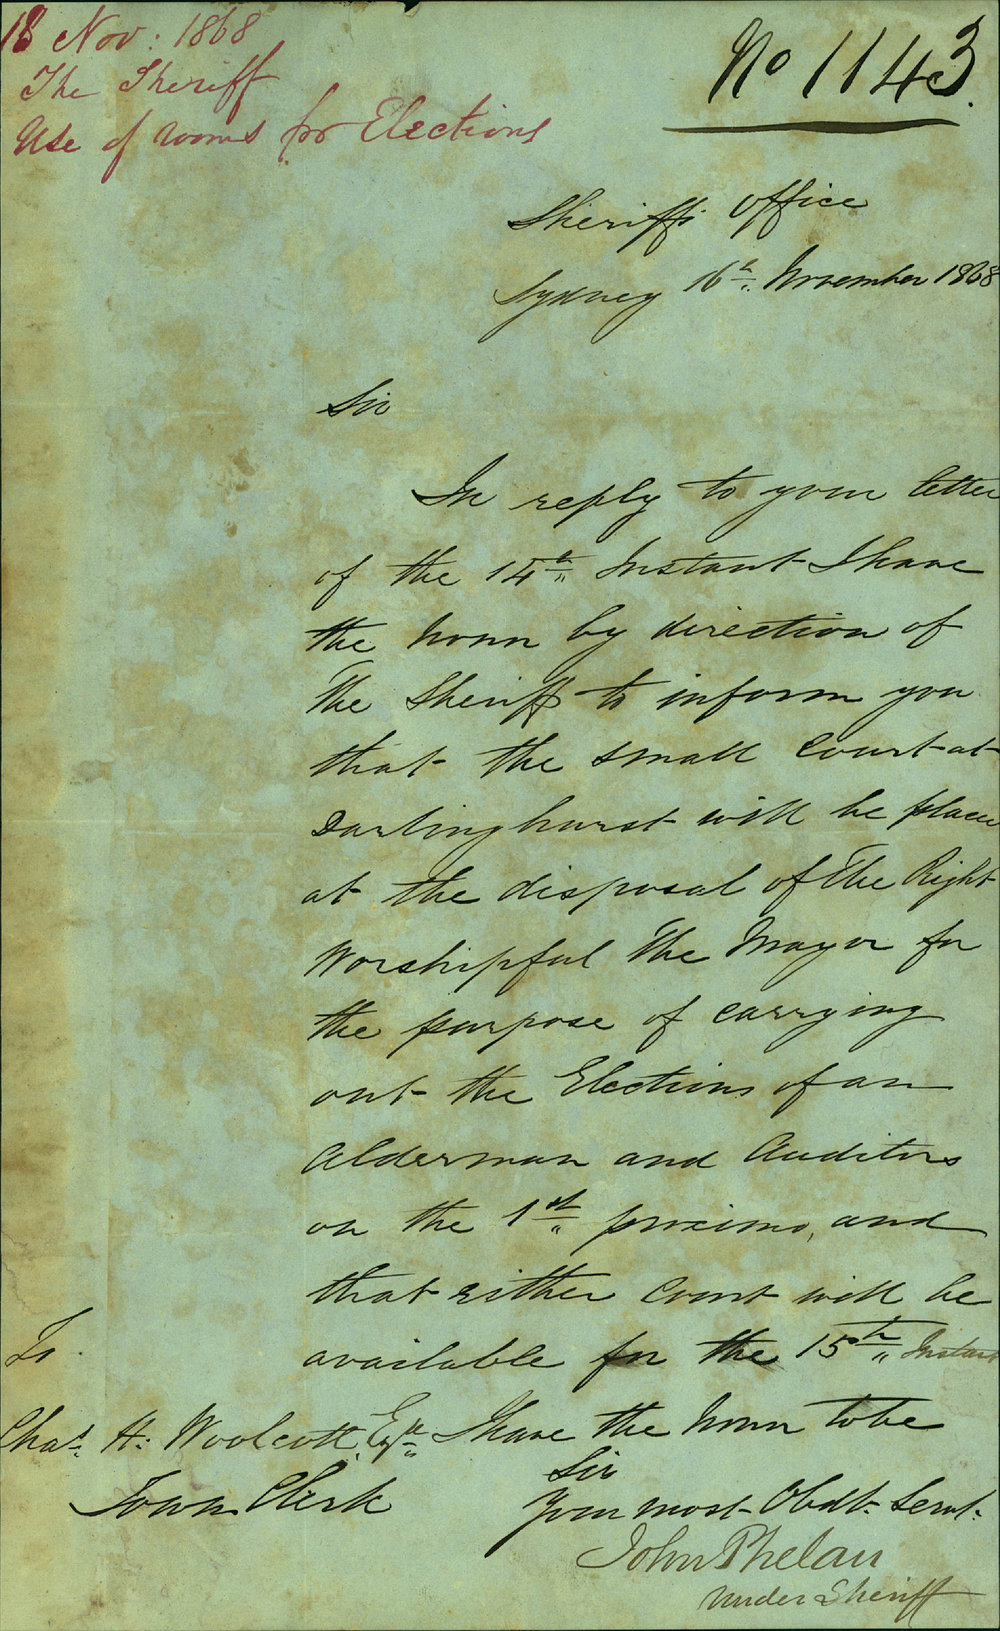 18 Nov: 1868
The Sheriff
Use of rooms for Elections
No 1143.
Sheriffs Office
Sydney 16th November 1868
Sir
In reply to your letter
of the 14th Instant I have
the honor by direction of
The Sheriff to inform you
that the small Court at
Darlinghurst will be place
at the disposal of The Right
Worshipful The Mayor for
the purpose of carrying
out the Elections of an
Alderman and Auditors
on the 1st proximo, and
that either Court will be
available for the 15th Instant
I have the honor to be
Sir
Your most Obdt. Servt.
John Phelan
Under Sheriff
To.
Chas. H: Woolcott Esqre
Town Clerk